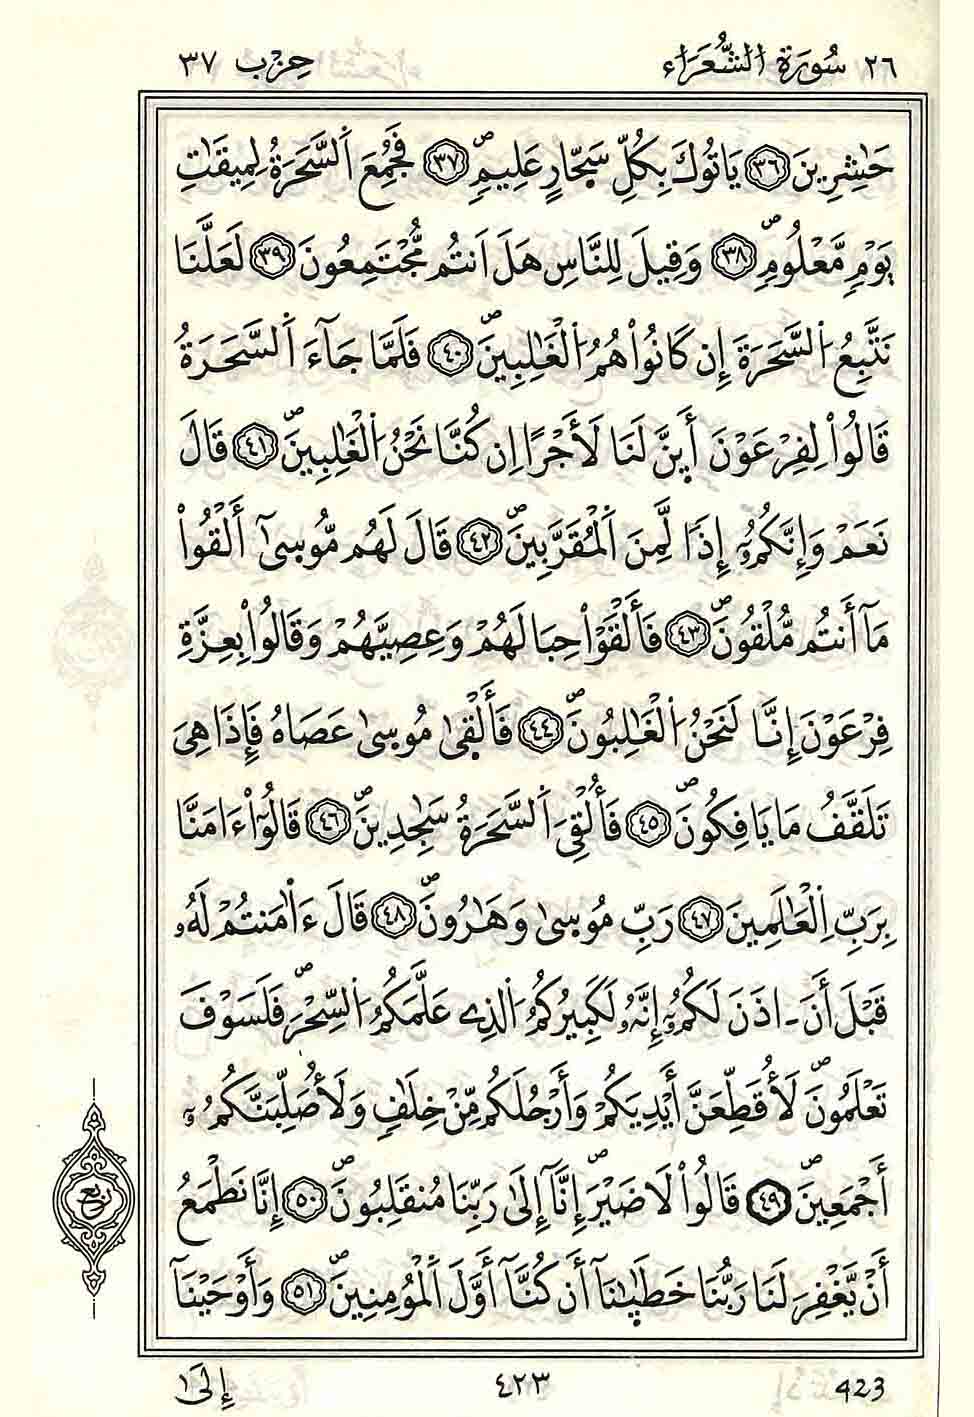 ٢٦ سُورَةُ الشُّعَرَاءِ حِزْب ٣٧
حَٰشِرِينَ ٣٦ يَاتُوكَ بِكُلِّ سَحّ۪ارٍ عَلِيمٖۖ ٣٧ فَجُمِعَ اَ۬لسَّحَرَةُ لِمِيقَٰتِ
يَوْمٖ مَّعْلُومٖۖ ٣٨ وَقِيلَ لِلنَّاسِ هَلَ اَنتُم مُّجْتَمِعُونَ ٣٩ لَعَلَّنَا
نَتَّبِعُ اُ۬لسَّحَرَةَ إِن كَانُواْ هُمُ اُ۬لْغَٰلِبِينَۖ ٤٠ فَلَمَّا جَآءَ اَ۬لسَّحَرَةُ
قَالُواْ لِفِرْعَوْنَ أَي۪نَّ لَنَا لَأَجْرًا اِن كُنَّا نَحْنُ اُ۬لْغَٰلِبِينَۖ ٤١ قَالَ
نَعَمْ وَإِنَّكُمُۥٓ إِذًا لَّمِنَ اَ۬لْمُقَرَّبِينَۖ ٤٢ قَالَ لَهُم مُّوس۪ىٰٓ أَلْقُواْ
مَآ أَنتُم مُّلْقُونَۖ ٤٣ فَأَلْقَوْاْ حِبَالَهُمْ وَعِصِيَّهُمْ وَقَالُواْ بِعِزَّةِ
فِرْعَوْنَ إِنَّا لَنَحْنُ اُ۬لْغَٰلِبُونَۖ ٤٤ فَأَلْق۪ىٰ مُوس۪ىٰ عَصَاهُ فَإِذَا هِيَ
تَلَقَّفُ مَا يَافِكُونَۖ ٤٥ فَأُلْقِيَ اَ۬لسَّحَرَةُ سَٰجِدِينَۖ ٤٦ قَالُوٓاْ ءَامَنَّا
بِرَبِّ اِ۬لْعَٰلَمِينَ ٤٧ رَبِّ مُوس۪ىٰ وَهَٰرُونَۖ ٤٨ قَالَ ءَا۬مَنتُمْ لَهُۥ
قَبْلَ أَنَ ـ اذَنَ لَكُمُۥٓ إِنَّهُۥ لَكَبِيرُكُمُ اُ۬لذِے عَلَّمَكُمُ اُ۬لسِّحْرَۖ فَلَسَوْفَ
تَعْلَمُونَۖ لَأُقَطِّعَنَّ أَيْدِيَكُمْ وَأَرْجُلَكُم مِّنْ خِلَٰفٖ وَلَأُصَلِّبَنَّكُمُۥٓ
أَجْمَعِينَۖ ٤٩ قَالُواْ لَا ضَيْرَۖ إِنَّآ إِلَىٰ رَبِّنَا مُنقَلِبُونَۖ ٥٠ إِنَّا نَطْمَعُ
أَنْ يَّغْفِرَ لَنَا رَبُّنَا خَطَٰيَٰنَآ أَن كُنَّآ أَوَّلَ اَ۬لْمُومِنِينَۖ ٥١ وَأَوْحَيْنَآ
ربع
إِلَىٰ ٤٢٣ 423